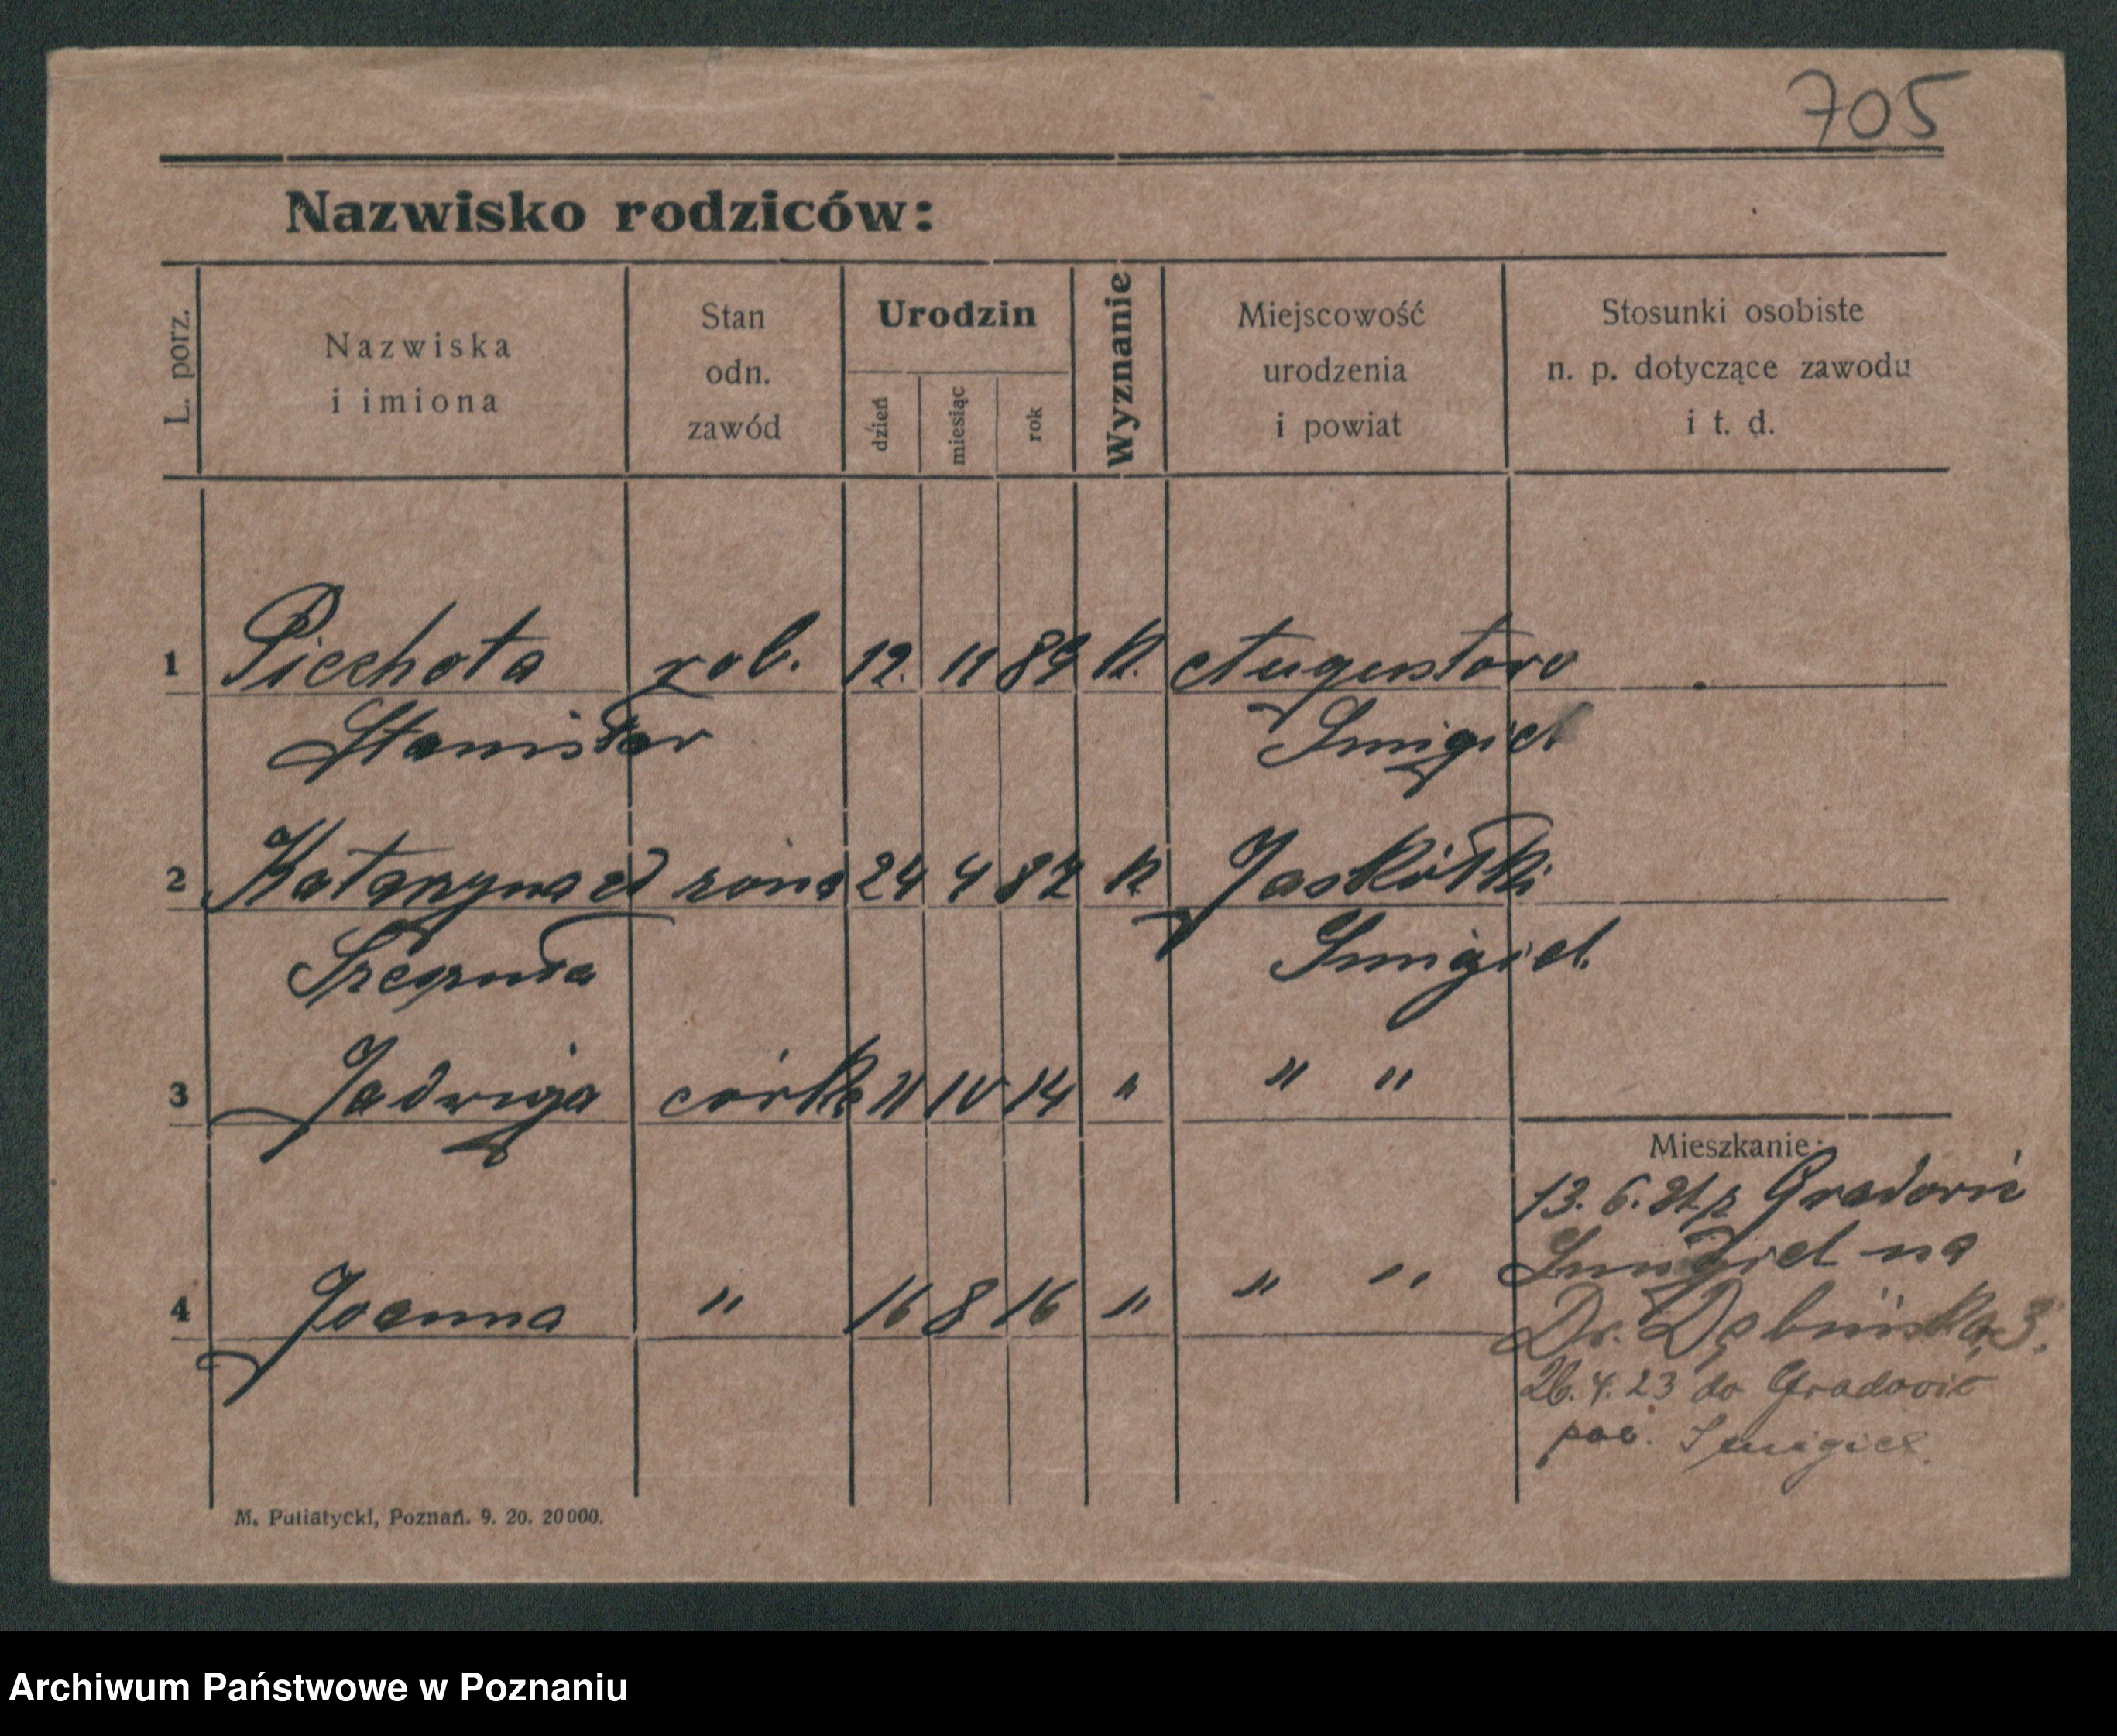 705
Nazwisko rodziców:
L. porz.
Nazwiska
i imiona
Stan
odn.
zawód
Urodzin
dzień
miesiąc
rok
Wyznanie
Miejscowość
urodzenia
i powiat
Stosunki osobiste
n. p. dotyczące zawodu
i t. d.
1 Piechota rob. 12. 11 89 k. Augustowo
Stanisław Śmigiel
2 Katarzyna żona 24 4 87 k Jaskółki
Śmigiel.
3 Jadwiga córka 11 10 14 " " "
4 Joanna " 16 8 16 " " "
Mieszkanie:
13. 6. 21. z Gradowic
Śmigiel na
Dr. Dębińska 3.
26. 4. 23 do Gradowic
pow. Śmigiel.
M. Putiatycki, Poznań. 9. 20. 20000.
Archiwum Państwowe w Poznaniu